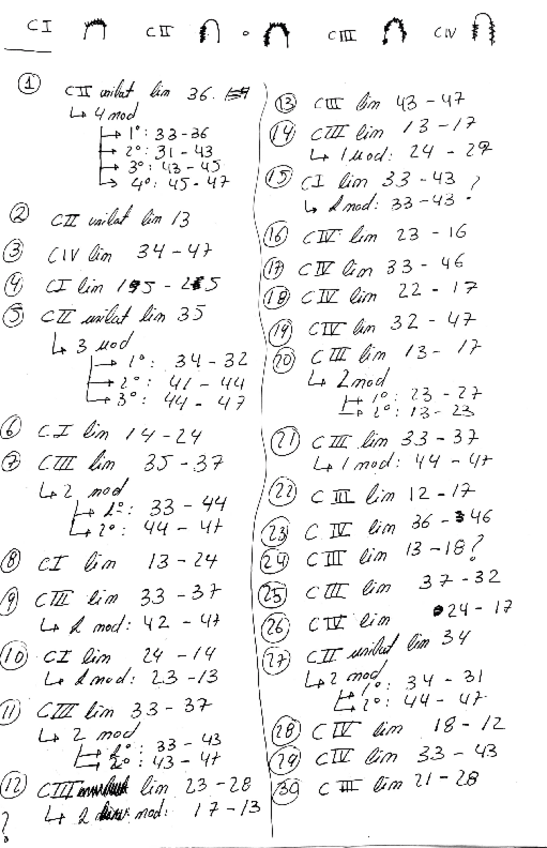 CI CII o CIII CIV
① CII unilat lim 36.
↳ 4 mod
→ 1º: 33-36
→ 2º: 31-43
→ 3º: 43-45
→ 4º: 45-47
② CII unilat lim 13
③ CIV lim 34-47
④ CI lim
⑤ CII unilat lim 35
↳ 3 mod
→ 1º: 34-32
→ 2º: 41-44
→ 3º: 44-47
⑥ CI lim 14-24
⑦ CIII lim 35-37
↳ 2 mod
→ 1º: 33-44
→ 2º: 44-47
⑧ CI lim 13-24
⑨ CIII lim 33-37
↳ 1 mod: 42-47
⑩ CI lim 24-14
↳ 1 mod: 23-13
⑪ CIII lim 33-37
↳ 2 mod
→ 1º: 33-43
→ 2º: 43-47
⑫ CIII lim 23-28
↳ 2 mod: 17-13
?
⑬ CIII lim 43-47
⑭ CIII lim 13-17
↳ 1 mod: 24-27
⑮ CI lim 33-43 ?
↳ 1 mod: 33-43
⑯ CIV lim 23-16
⑰ CIV lim 33-46
⑱ CIV lim 22-17
⑲ CIV lim 32-47
⑳ CIII lim 13-17
↳ 2 mod
→ 1º: 23-27
→ 2º: 13-23
㉑ CIII lim 33-37
↳ 1 mod: 44-47
㉒ CIII lim 12-17
㉓ CIV lim 36-46
㉔ CIII lim 13-18?
㉕ CIII lim 37-32
㉖ CIV lim 24-17
㉗ CII unilat lim 34
↳ 2 mod
→ 1º: 34-31
→ 2º: 44-47
㉘ CIV lim 18-12
㉙ CIV lim 33-43
㉚ CIII lim 21-28